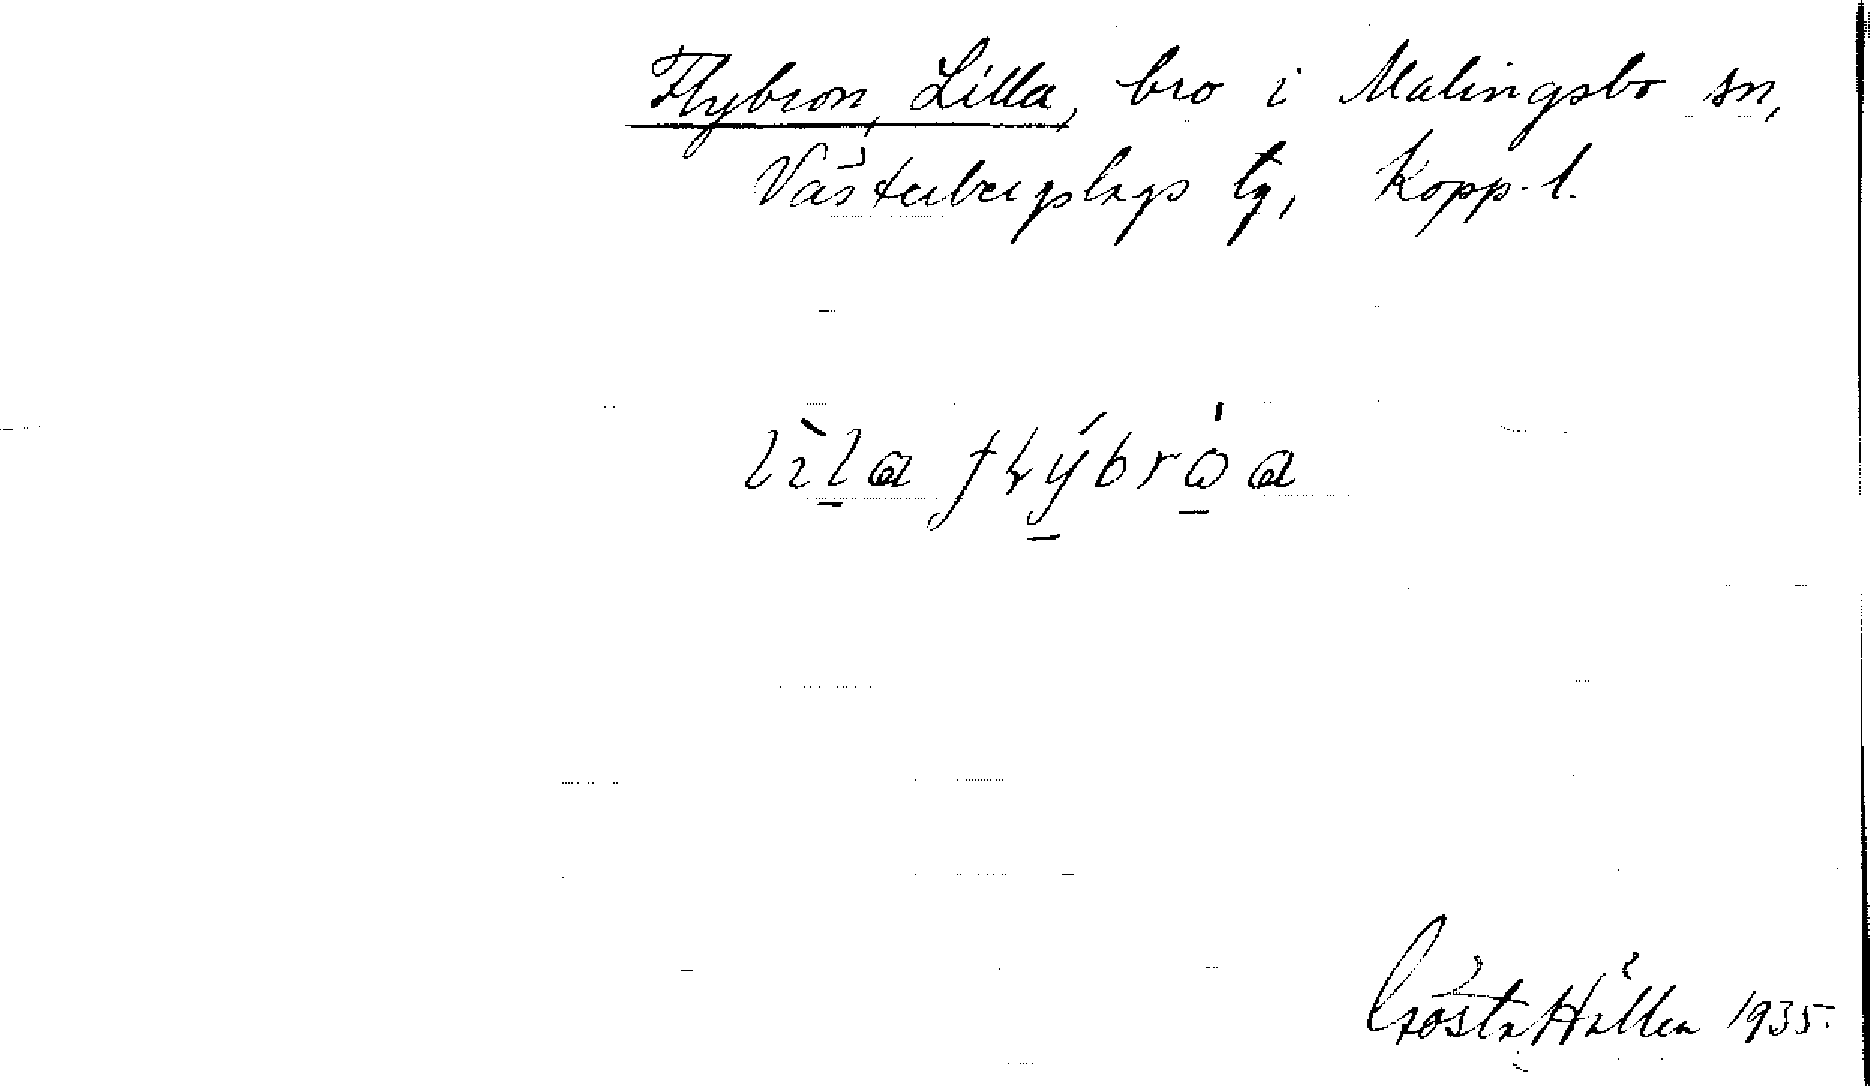 Flybron, Lilla, bro i Malingsbo sn,
Västerbergslags tg, Kopp. l.
lìla flýbróa
Gösta Hållen 1935.